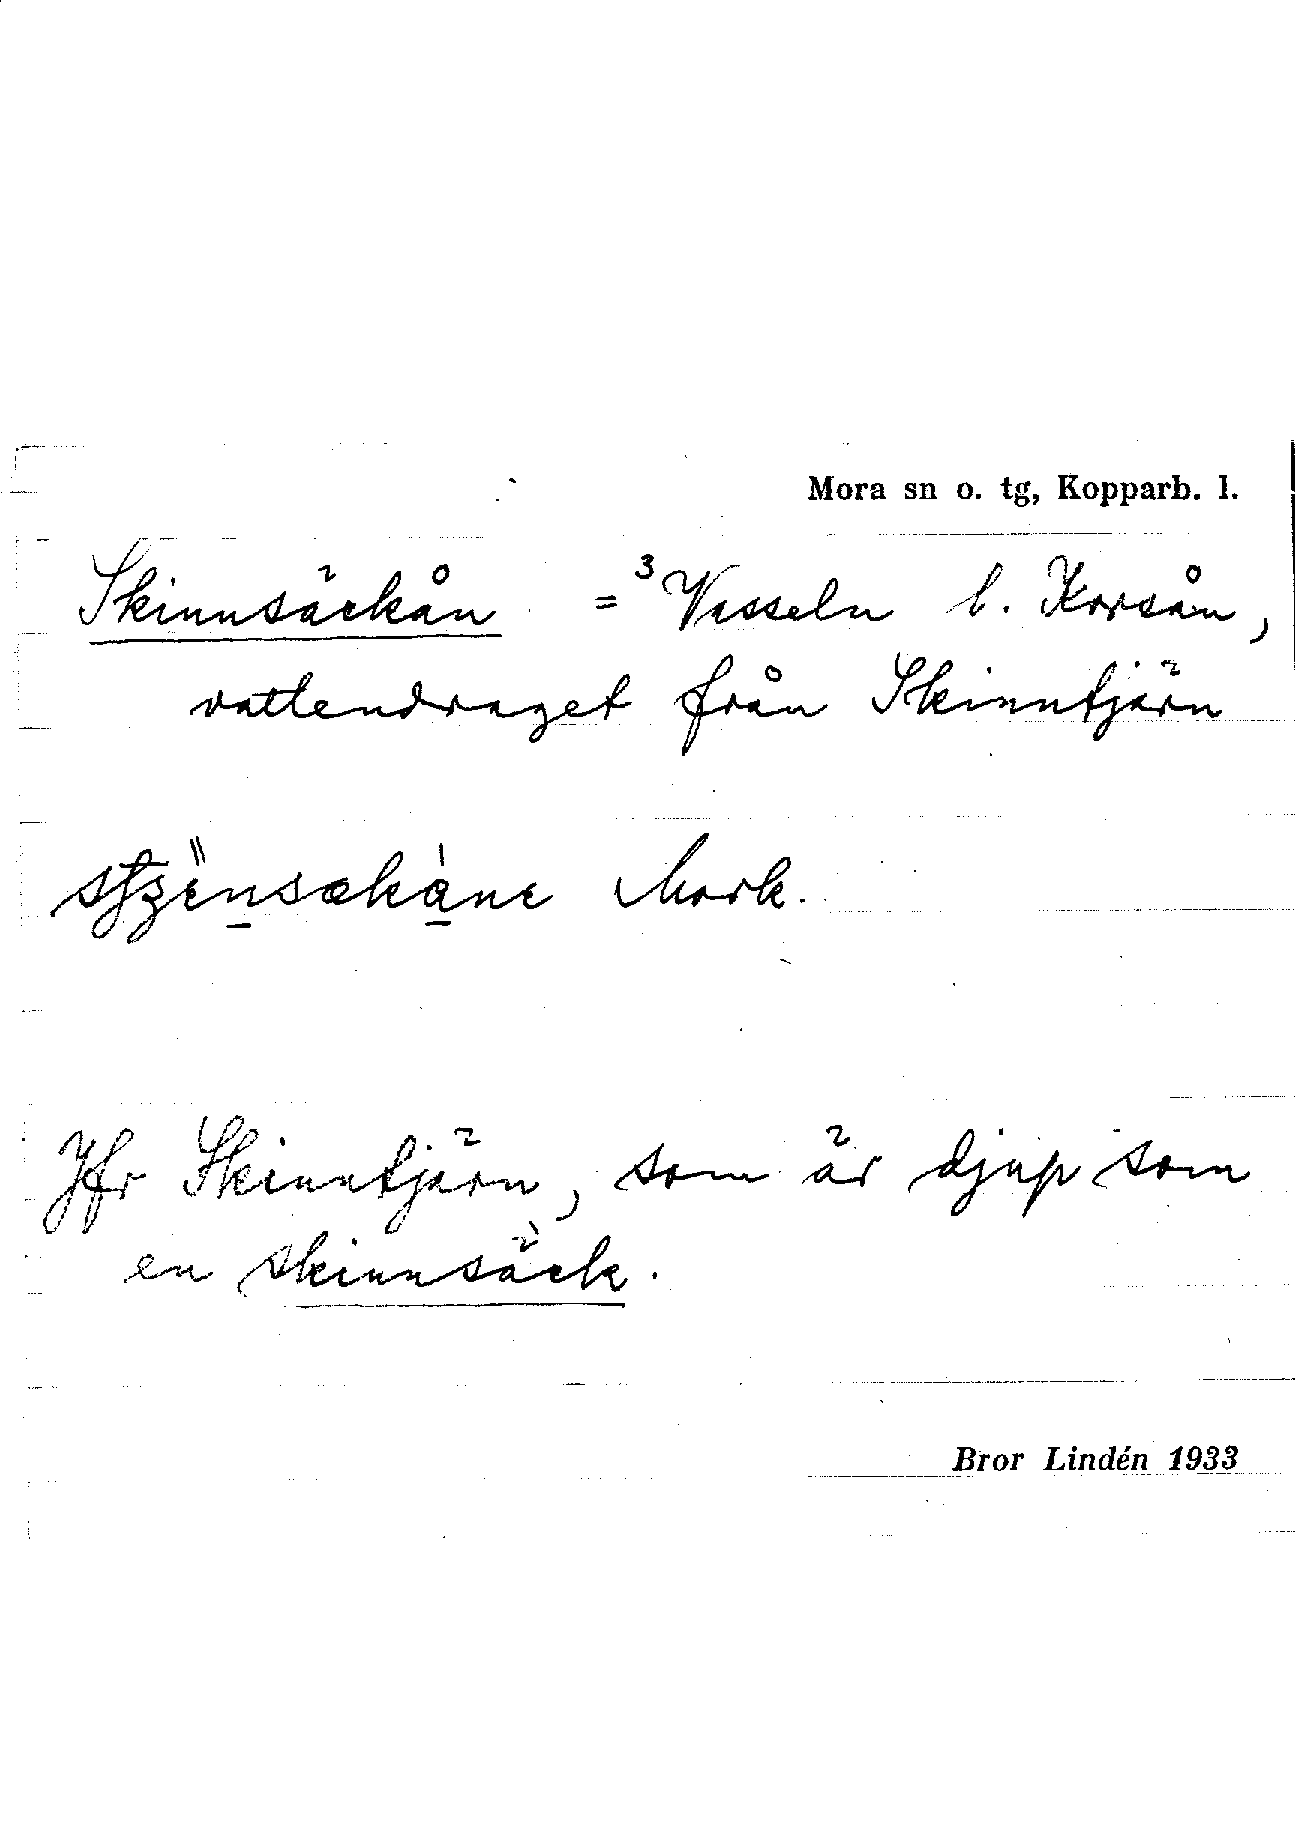 Mora sn o. tg, Kopparb. l.
Skinnsäckån = ³Vasseln l. Korsån,
vattendraget från Skinntjärn
Mork.
Jfr Skinntjärn, som är djup som
en skinnsäck.
Bror Lindén 1933